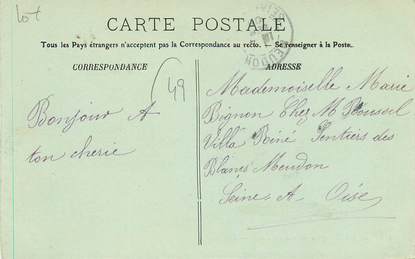 Lot
CARTE POSTALE
Tous les Pays étrangers n'acceptent pas la Correspondance au recto. — Se renseigner à la Poste.
CORRESPONDANCE
ADRESSE
49
Bonjour A
ton cherie
Mademoiselle Marie
Bignon Chez M
Villa Réné Sentiers des
Blancs Meudon
Seine A. Oise
MEUDON